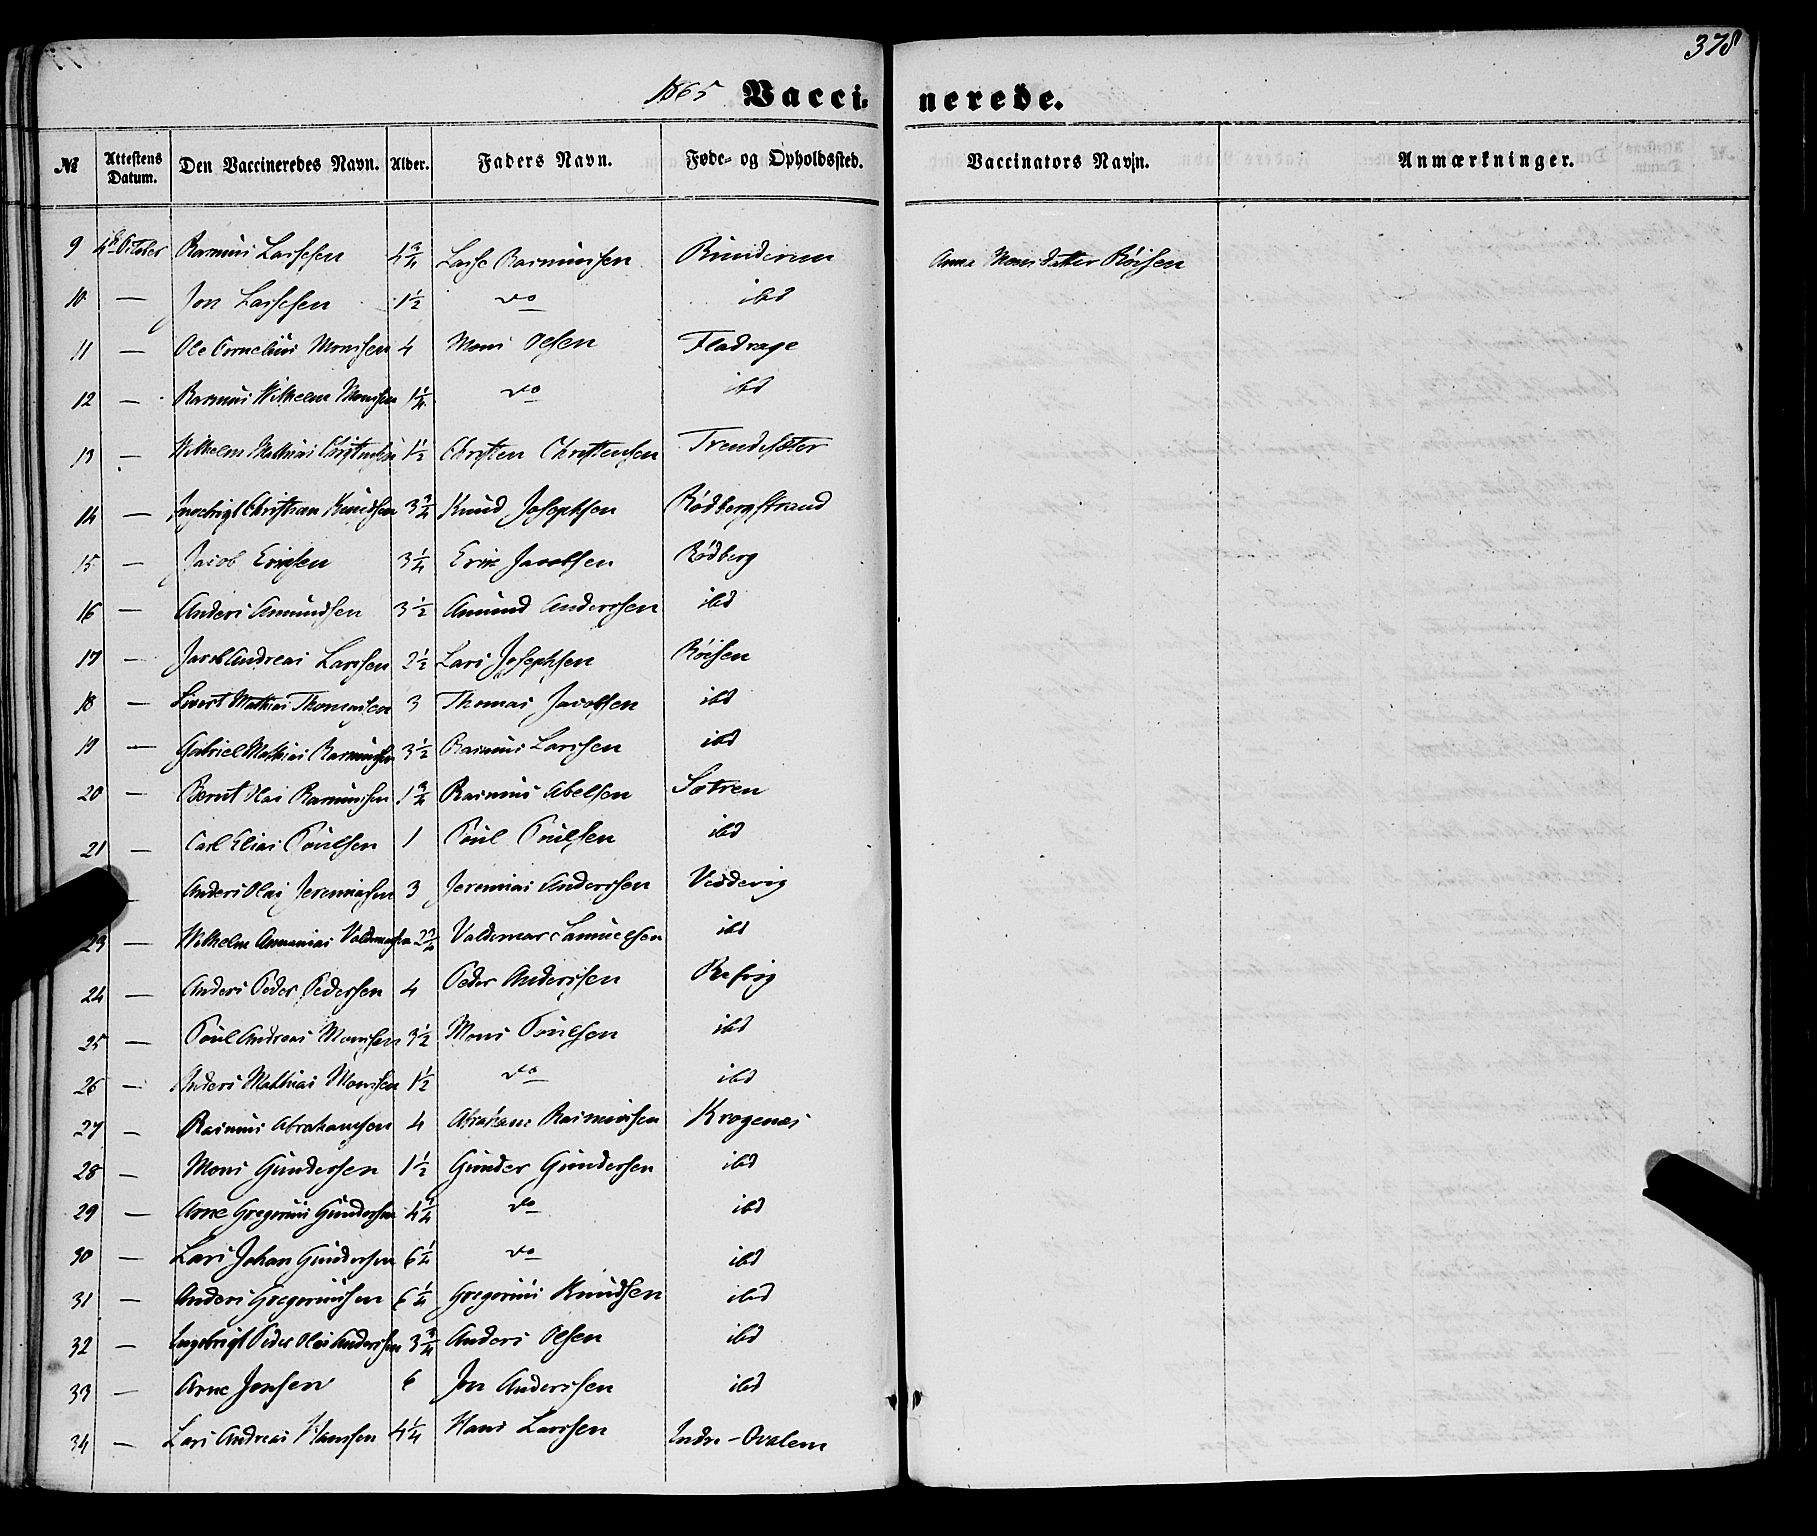 378
1865 Vaccinerede.
№ Attestens Datum. Den Vaccineredes Navn. Alder. Faders Navn. Føde- og Opholdssted. Vaccinators Navn. Anmærkninger.
9 4de October Rasmus Lassesen 4 3/4 Lasse Rasmussen Runderum Anna Monsdatter Röisen
10 — Jon Lassesen 1 1/2 do ibd
11 — Ole Cornelius Monsen 4 Mons Olsen Fladrage
12 — Rasmus Wilhelm Monsen 1 1/4 do ibd
13 — Wilhelm Mathias Christensen 1 1/2 Christen Christensen Trendesæter
14 — Ingebrigt Christian Knudsen 3 3/4 Knud Josephsen Rödbergstrand
15 — Jacob Ericsen 3 1/4 Eric Jacobsen Rödberg
16 — Anders Amundsen 3 1/2 Amund Anderssen ibd
17 — Jacob Andreas Larssen 2 1/2 Lars Josephsen Röisen
18 — Sivert Mathias Thomassen 3 Thomas Jacobsen ibd
19 — Gabriel Mathias Rasmussen 3 1/2 Rasmus Larssen ibd
20 — Bernt Olai Rasmussen 1 3/4 Rasmus Abelsen Sætren
21 — Carl Elias Poulsen 1 Poul Poulsen ibd
— Anders Olai Jeremiassen 3 Jeremias Anderssen Vedvig
23 — Wilhelm Ananias Valdemarsen 2 3/4 Valdemar Samuelsen ibd
24 — Anders Peder Pedersen 4 Peder Anderssen Refvig
25 — Poul Andreas Monsen 3 1/2 Mons Poulsen ibd
26 — Anders Mathias Monsen 1 1/2 do ibd
27 — Rasmus Abrahamsen 4 Abraham Rasmussen Krogenæs
28 — Mons Gundersen 1 1/2 Gunder Gundersen ibd
29 — Arne Gregorius Gundersen 4 3/4 do ibd
30 — Lars Johan Gundersen 6 1/4 do ibd
31 — Anders Gregoriussen 6 1/4 Gregorius Knudsen ibd
32 — Ingebrigt Peder Olai Anderssen 3 3/4 Anders Olsen ibd
33 — Arne Jonsen 6 Jon Anderssen ibd
34 — Lars Andreas Hanssen 4 1/4 Hans Larssen Indre-Qvalem